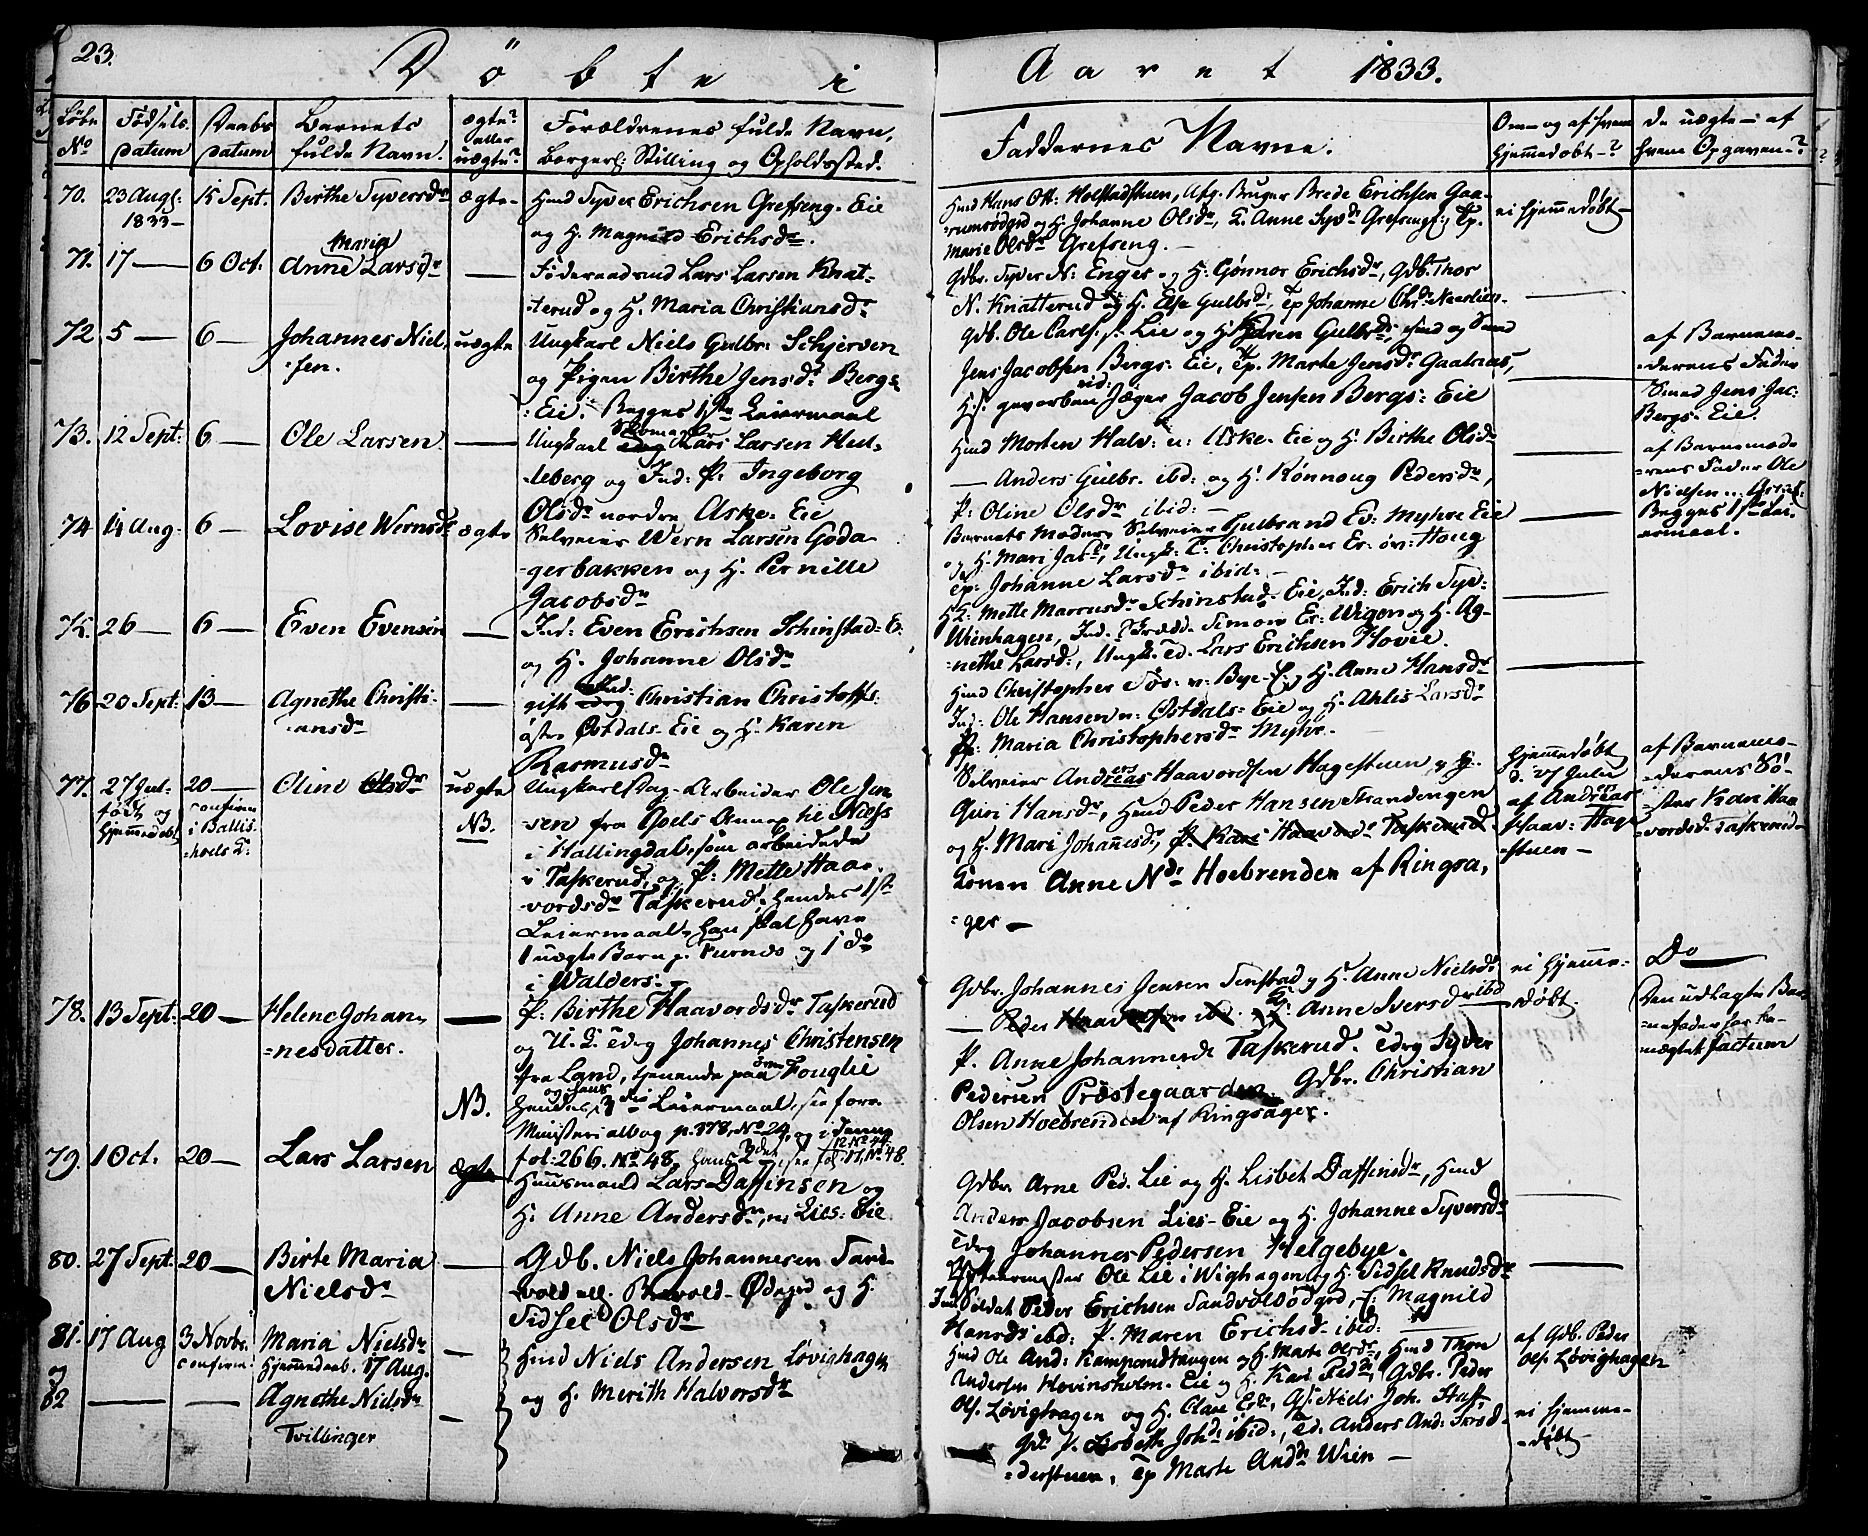 23.
Döbte i Aaret 1833.
Löbe No
Födsels datum
Daabs datum
Barnets fulde Navn.
ægte? eller uægte?
Forældrenes fulde Navn, Borgerl: Stilling og Opholdssted.
Faddernes Navne.
Om- og af hvem hjemmedøbt-?
De uægte - af hvem Opgaven-?
70. 23 Augs: 1833- 15 Sept. Birthe Syversdr ægte-
Hmd Syver Erichsen Grefseng. Eie
og H. Magnild Erichsdr.
Hmd Hans Ols: Holstadstuen, Brede Erichsen Gaa-
rumsödegrd og H. Johanne Olsdr, T. Anne Syvdr Grefseng, Ep.
Marie Olsdr Grefseng. -
ei Hjemmedøbt-
71. 17 — 6 Oct. Anne Maria Larsdr —
Föderaadsmd Lars Larsen Knat-
terud og H. Maria Christiansdr
Gdbr. Syver N: Enger og H: Gönnor Erichsdr, Gdb. Thor
N. Knatterud og H. Else Gulbrdr, Ep Johanne Chrdr
72 5 — 6 — Johannes Niel-
sen. uægte
Ungkarl Niels Gulbr: Schjerven
og Pigen Birthe Jensdr Bergs-
Eie. Begges 1ste Leiermaal
Gdb. Ole Carls. s. Lie og H. Karen Gulbrdr, Hmd og Smed
Jens Jacobsen Bergs. Eie, Ep. Marte Jensdr Gaalaas,
geworben Jæger Jacob Jensen Bergs: Eie
af Barnemo-
derens Fader
Smed Jens Jac:
Bergs. Eie.
73. 12 Sept: 6 — Ole Larsen. —
Ungkarl Skomager Lars Larsen Hul-
leberg og Ind: P: Ingeborg
Olsdr nordre Aske. Eie
Hmd Morten Halv: n: Aske. Eie og H. Birthe Olsdr
— Anders Gulbr. ibd: og H. Rönnoug Pedersdr,
P. Oline Olsdr ibid: -
af Barnemode-
rens Fader Ole
Nielsen
Begges 1ste Lei-
ermaal.
74 14 Aug. 6 — Lovise Wernsdr ægte
Selveier Wern Larsen Goda-
gerbakken og H. Pernille
Jacobsdr
Barnets Moder, Selveier Gulbrand Ev: Myhre Eie
og H. Mari Jacdr, Ungk. C: Christopher Er. öv: Houg
Ep: Johanne Larsdr ibid: -
75. 26 — 6 — Even Evensen —
Ind: Even Erichsen Schinstad: E.
og H. Johanne Olsdr
Mette Marcusdr Schinstad. Eie, Ind: Erich Syv:
Wienhagen, Ind. Simon Er: Wigen og H. Ag-
nethe Larsd:, Ungk. Ed. Lars Erichsen Hovie.
76 20 Sept: 13 — Agnethe Christi-
ansdr —
gift Ind: Christian Christoffs:
östre Östdals. Eie og H. Karen
Rasmusdr
Hmd Christopher Tös: n: Bye-E. og H. Anne Hansdr
Ind: Ole Hansen n: Östdals= Eie og H. Ahlis Larsdr
Ep: Maria Christophersdr Myhr.
77. 27 Jul:
födt og
hjemmedøbt 20 —
confirm
i Ballis-
hols K: Oline Olsdr uægte
NB.
Ungkarl Dag-Arbeider Ole Jen
sen fra til Næss
i Hallingdal, som arbeidede
i Taskerud og P: Mette Haa-
vordsdr Taskerud, hendes 1ste
Leiermaal, han skal have
1 uægte Barn p. Furnæs og 1 do
i Walders. -
Selveier Andreas Haavordsen Hagestuen og H.
Guri Hansdr, Hmd Peder Hansen Strandengen
og H. Mari Johannesdr, P. Kari Haavordsdr Taskerud.
Konen Anne Ndr Hoebrenden af Ringsa,
ger —
hjemmedøbt
d. 27 Julii
af Andreas
Haav: Hage-
stuen -
af Barnemo-
derens Sö-
ster Kari Haa
vordsd. Taskerud-
78. 13 Sept: 20 — Helene Johan-
nesdatter. —
NB.
P: Birthe Haavordsdr Taskerud
og U. K. Johannes Christensen
fra Land, tjenende paa övre Fouglie
hendes 3die Leiermaal, see forr.
Ministerialbog p. 378, No 24, og i denne
fol: 266. No 48, hans 2det, see fol 12 No 44.
Gdbr. Johannes Jensen Tenstad og H. Anne Nielsdr
— Peder Haavordsen ibd. Ep: Anne Iversdr ibd
P. Anne Johannesdr Taskerud. Syver
Pedersen Præstegaarden. Gdbr. Christian
Olsen Hoebrenden af Ringsager.
ei hjemme-
døbt.
Do —
Den udlagte Bar-
nefader har be-
nægtet factum
79. 1 Oct. 20 — Lars Larsen ægte
Huusmand Lars Daffinsen og
H. Anne Andersdr, n: Lies: Eie
Gdbr. Arne Ped. Lie og H. Lisbet Daffinsdr, Hmd
Anders Jacobsen Lies-Eie og H. Johanne Syversdr
Johannes Pedersen Helgebye.
80. 27 Sept: 20 — Birte Maria
Nielsdr —
Gdb. Niels Johannesen Sand-
vold ell. Brævold- Ödegrd og H.
Sidsel Olsdr
Ole Lie i Wighagen og H. Sidsel Knudsdr
Soldat Peder Erichsen Sandvoldödgrd, E Magnild
Hansdr ibid: P. Maren Erichsd. ibid:
81. 17 Aug 3 Novbr.
confirm: Maria Nielsdr
hjemmedøb. 17 Aug. —
og
82 — — Agnethe Nielsdr
Tvillinger —
Hmd Niels Andersen Lövighagen
og H. Merith Halvorsdr
Hmd Ole And: Kamperudtangen og H. Marte Olsdr, Hmd Thor
Andersen Hovinsholm. Eie og H. Kari Peddr, Gdbr. Peder
Ols. Lövighagen og H. Clare Niels Joh. Staff,
P. Lisbeth Johdr ibid:, Ed. Anders And:
derstuen, Ep Marte Anddr Wien —
af Gdb. Peder
Ols. Lövighagen
ei hjemme-
døbt